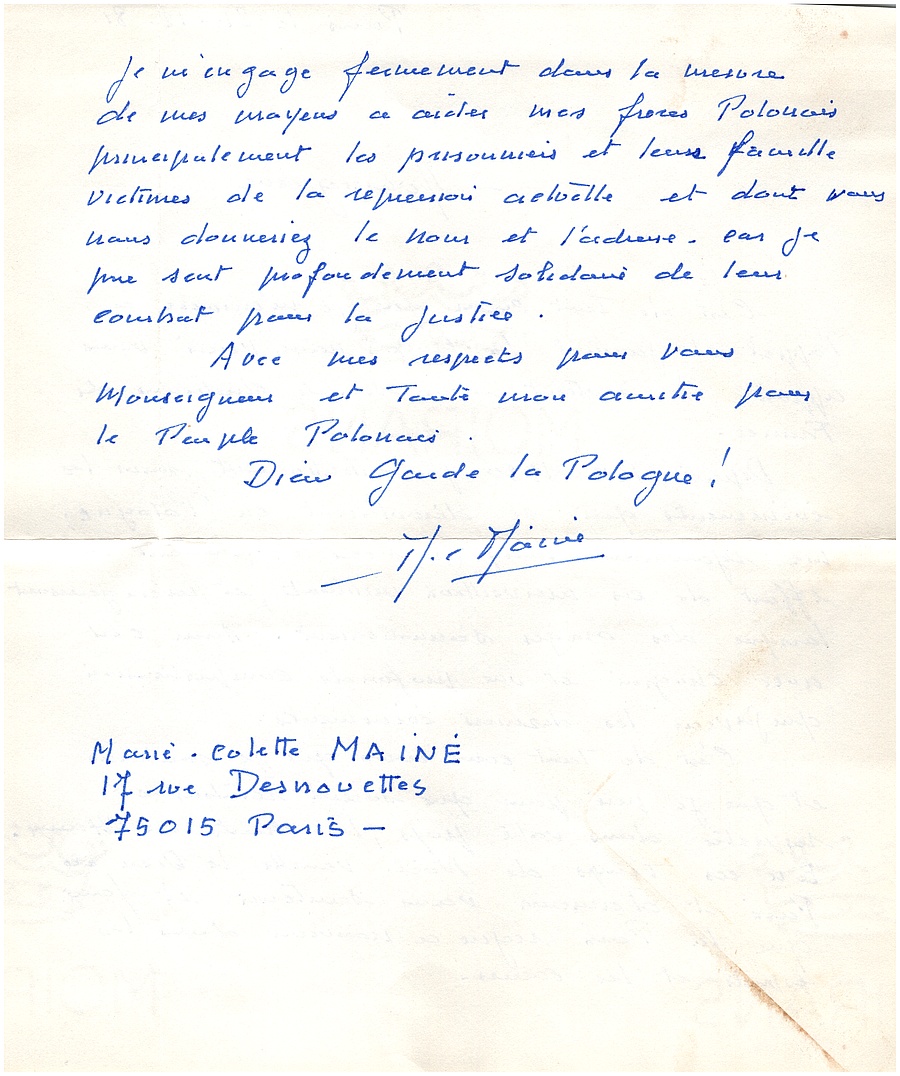 Je m'engage fermement dans la mesure
de mes moyens a aider mes freres Polonais
principalement les prisonniers et leurs famille
victimes de la repression actuelle et dont vous
nous donneriez le nom et l'adresse. car je
me sent profondement solidaire de leur
combat pour la justice.
Avec mes respects pour vous
Monseigneur et toute mon amitie pour
le Peuple Polonais.
Dieu Garde la Pologne !
M.C Mainé
Marie-Colette MAINÉ
17 rue Desnouettes
75015 Paris -